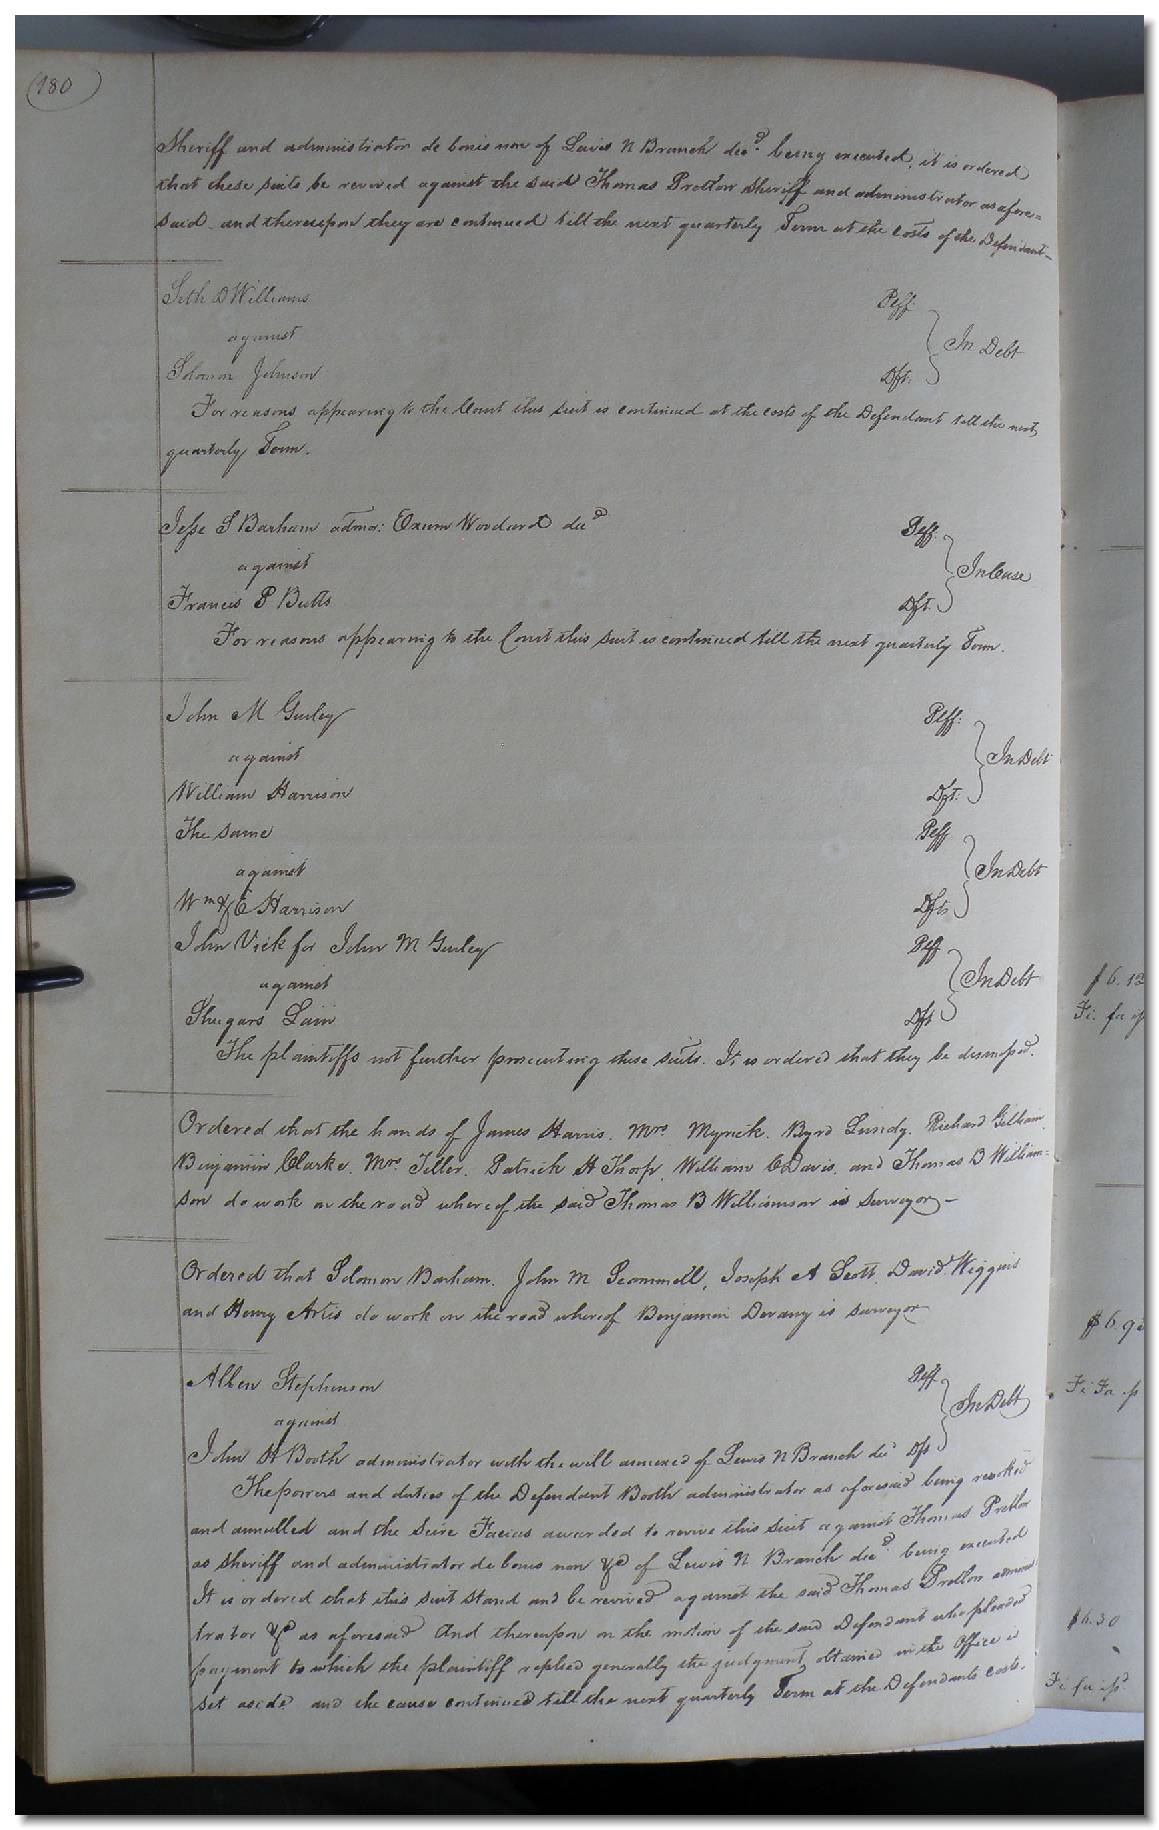 180
Sheriff and administrator de bonis non of Lewis N Branch decd. being executed, it is ordered
that these suits be revived against the said Thomas Pretlow sheriff and administrator as afore=
said and thereupon they are continued till the next quarterly Term at the costs of the Defendant—
Seth D Williams Plff.
against In Debt
Solomon Johnson Dft.
For reasons appearing to the Court this suit is continued at the costs of the Defendant till the next
quarterly Term.
Jesse S Barham admor: Exum Woodard decd Plff.
against In Case
Francis P Butts Dft.
For reasons appearing to the Court this suit is continued till the next quarterly Term.
John M Gurley Plff:
against In Debt
William Harrison Dft.
The same Plff
against In Debt
Wm & E Harrison Dfts
John Vick for John M Gurley Plff
against In Debt
Shugars Lain Dft
The plaintiffs not further prosecuting these suits. It is ordered that they be dismissed.
Ordered that the hands of James Harris. Mrs Myrick. Byrd Lundy. Richard Gilliam.
Benjamin Clarke. Mrs Tiller. Patrick H Thorp. William C Davis. and Thomas B William=
son do work on the road whereof the said Thomas B Williamson is Surveyor—
Ordered that Solomon Barham. John M Scammell, Joseph A Scott. David Wiggins
and Henry Artis do work on the road whereof Benjamin Devany is surveyor
Allen Stephenson Plff
against In Debt
John H Booth administrator with the will annexed of Lewis N Branch decd Dft.
The powers and duties of the Defendant Booth administrator as aforesaid being revoked
and annulled and the Scire Facias awarded to revive this suit against Thomas Pretlow
as sheriff and administrator de bonis non &c of Lewis N Branch decd. being executed
It is ordered that this suit stand and be revived against the said Thomas Pretlow
trator &c as aforesaid And thereupon on the motion of the said Defendant who pleaded
payment to which the plaintiff replied generally the judgment obtained in the Office is
set aside and the cause continued till the next quarterly Term at the Defendants costs.
$6.12
Fi. fa
$6.9
Fi Fa
$6.30
Fi fa